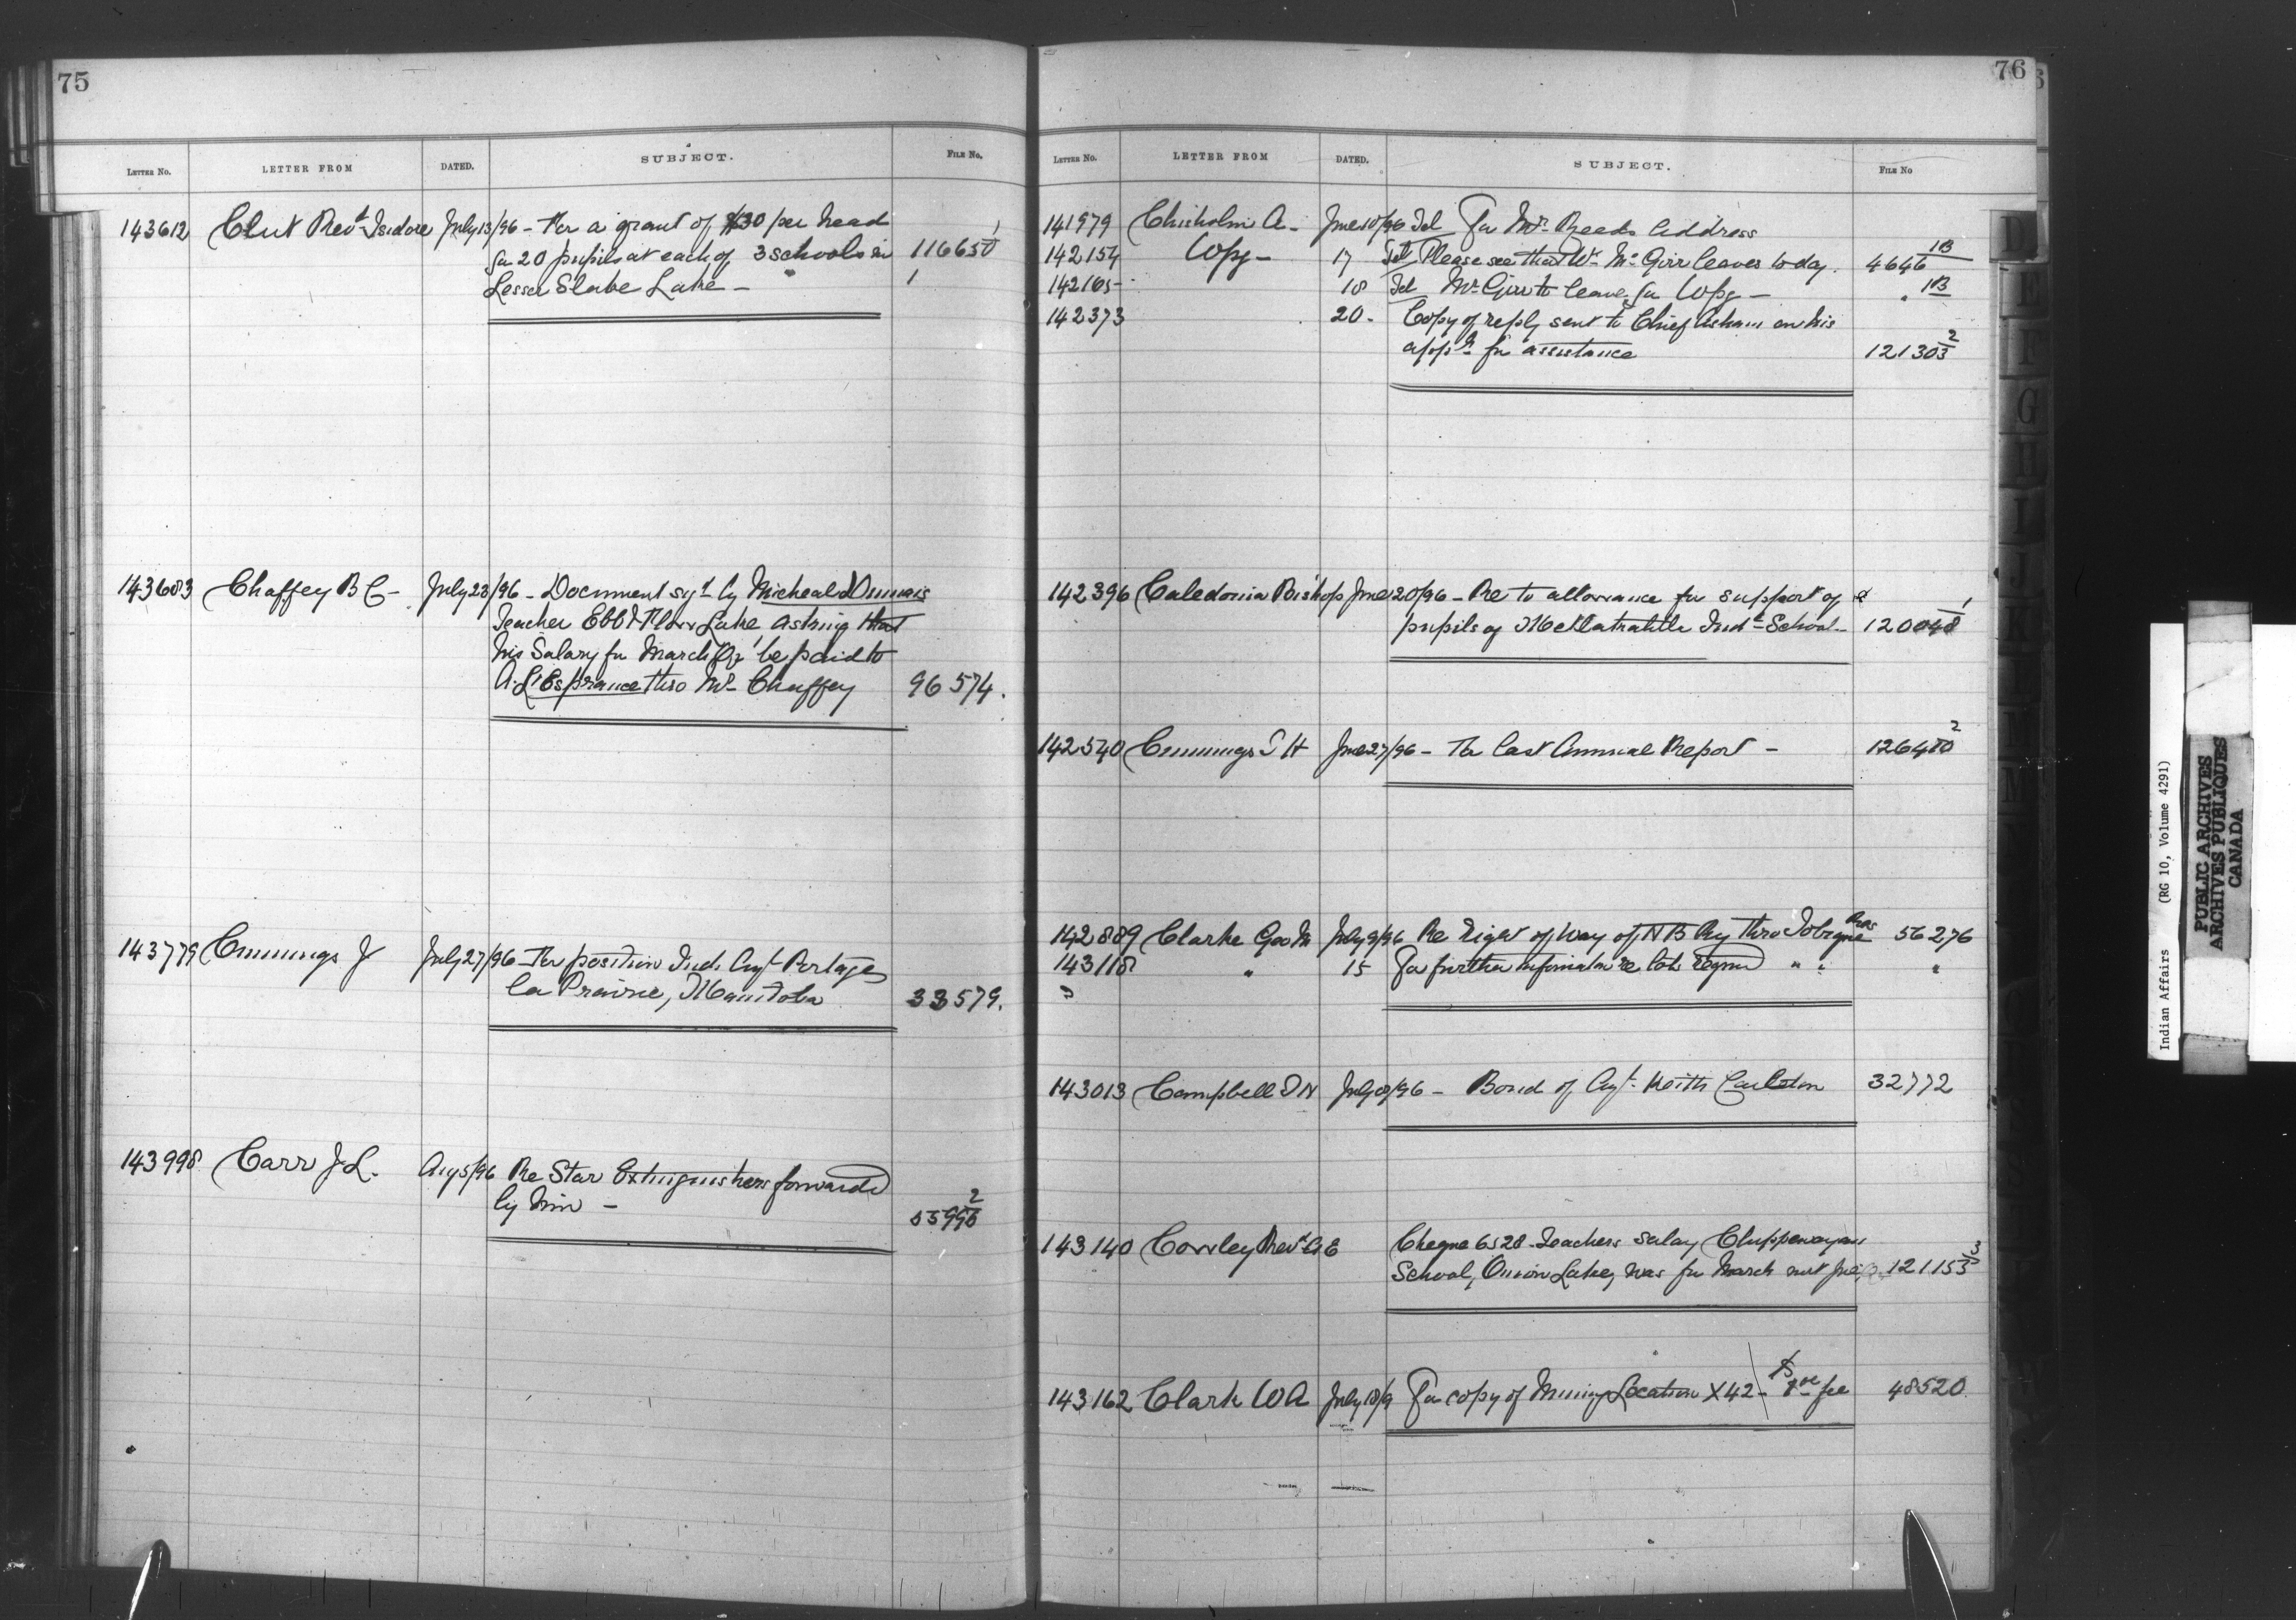 75
LETTER NO. LETTER FROM DATED. SUBJECT. FILE NO.
143612 Clut Revd Isidore July 13/96 - For a grant of $30 per head
for 20 pupils at each of 3 schools in 116650 1
Lesser Slave Lake - 1
143683 Chaffey B C - July 23/96 - Document sgd by Micheal d'
Teacher Ebb & Flow Lake asking that
his Salary for March Qr be paid to
A. L'Esprance thro Mr Chaffey 96574.
143779 Cummings J July 27/96 - For position Ind. Agt Portage
la Prairie, Manitoba 33579.
143998 Carr J. L. Aug 5/96 Re Star Extinguishers forwarded
by him - 55998 2
76
LETTER NO. LETTER FROM DATED. SUBJECT. FILE NO
141979 Chisholm A - June 10/96 Tel For Mr Reeds Address
142154 Wpg - 17 Tel Please see that Wm McGirr leaves to day. 4646 1B
142165 - 18 Tel McGirr to leave for Wpg - " 1B
142373 20 - Copy of reply sent to Chief Asham on his
appn for assistance 121303 2
142396 Caledonia Bishop June 20/96 - Re to allowance for support of
pupils of Metlakahtla Indl School - 120048 1
142540 Cummings T H June 27/96 - For last Annual Report - 126480 2
142889 Clarke Geo M July 9/96 Re Right of Way of N B Ry thro Tobique Res 56276
143118 " 15 For further information re lots reqrd " " "
143013 Campbell D N July 8/96 - Bond of Agt. Keith Carlton 32772
143140 Cowley Revd G E Cheque 6528 Teachers Salary Chippewayan
School, Onion Lake, was for March not June 121153 3
143162 Clark W A July 18/9 For copy of Mining Location X42 - $ fee 48520
Indian Affairs (RG 10, Volume 4291)
PUBLIC ARCHIVES
ARCHIVES PUBLIQUES
CANADA
D
E
F
G
H
I
J
K
L
M